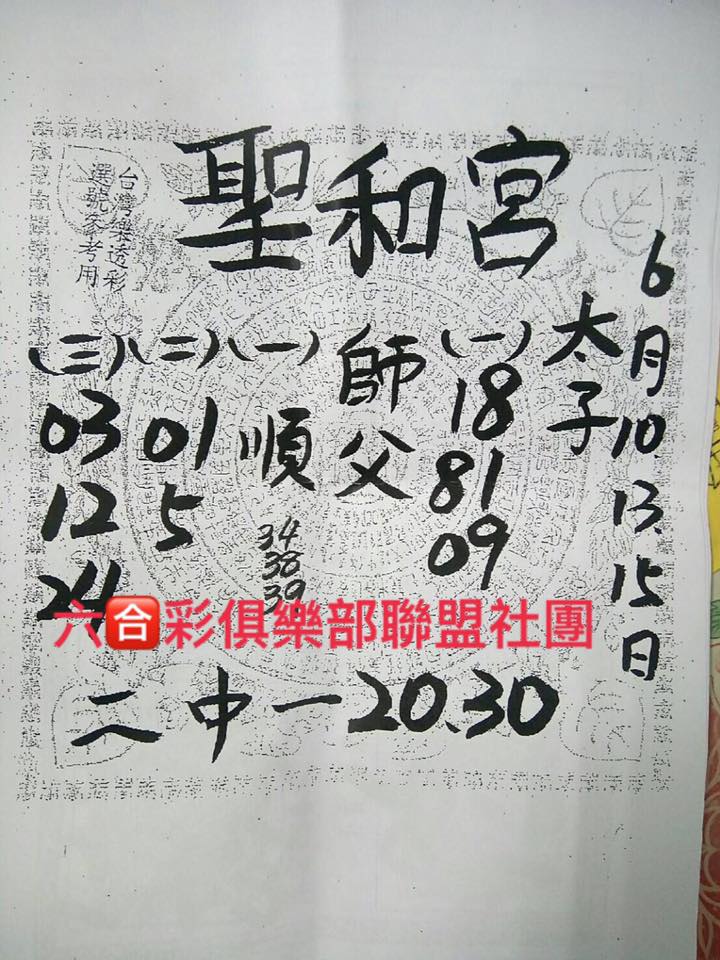 聖和宮
台灣樂透彩
選號參考用
6月10 13、15日
太子
(一)
18
81
09
師父
(一)
順
34
38
39
(二)
01
5
(三)
03
12
24
六合彩俱樂部聯盟社團
二中一20、30